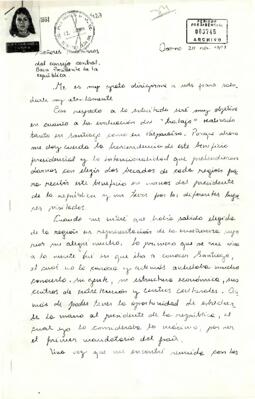 PERIODO
PRESIDENCIAL
003745
ARCHIVO
Osorno 20 nov. 1991
Señores Miembros
del consejo central.
Beca Presidente de la
república
Me es muy grato dirigirme a uds para salu-
darle muy atentamente.
Con respecto a lo solicitado seré muy objetiva
en cuanto a la evaluación del "trabajo" realizado
tanto en Santiago como en Valparaíso. Porque ahora
me doy cuenta la trascendencia de este beneficio
presidencial y la intencionalidad que pretendieron
darnos con elegir dos becados de cada región pa-
ra recibir este beneficio en manos del presidente
de la república y no pasar por los diferentes luga-
res visitados.
Cuando me avisé que había salido elegida
de la región en representación de la enseñanza supe-
rior me alegré mucho. Lo primero que se me vino
a la mente fué en que iba a conocer Santiago,
el cual no lo conocía y además anhelaba mucho
conocerlo. Su gente, su estructura económica, sus
centros de entretención y centros culturales. A-
más de poder tener la oportunidad de estrechar
de la mano al presidente de la república, el
cual yo lo consideraba lo máximo, por ser
el primer mandatario del país.
Una vez que me encontré reunida con los